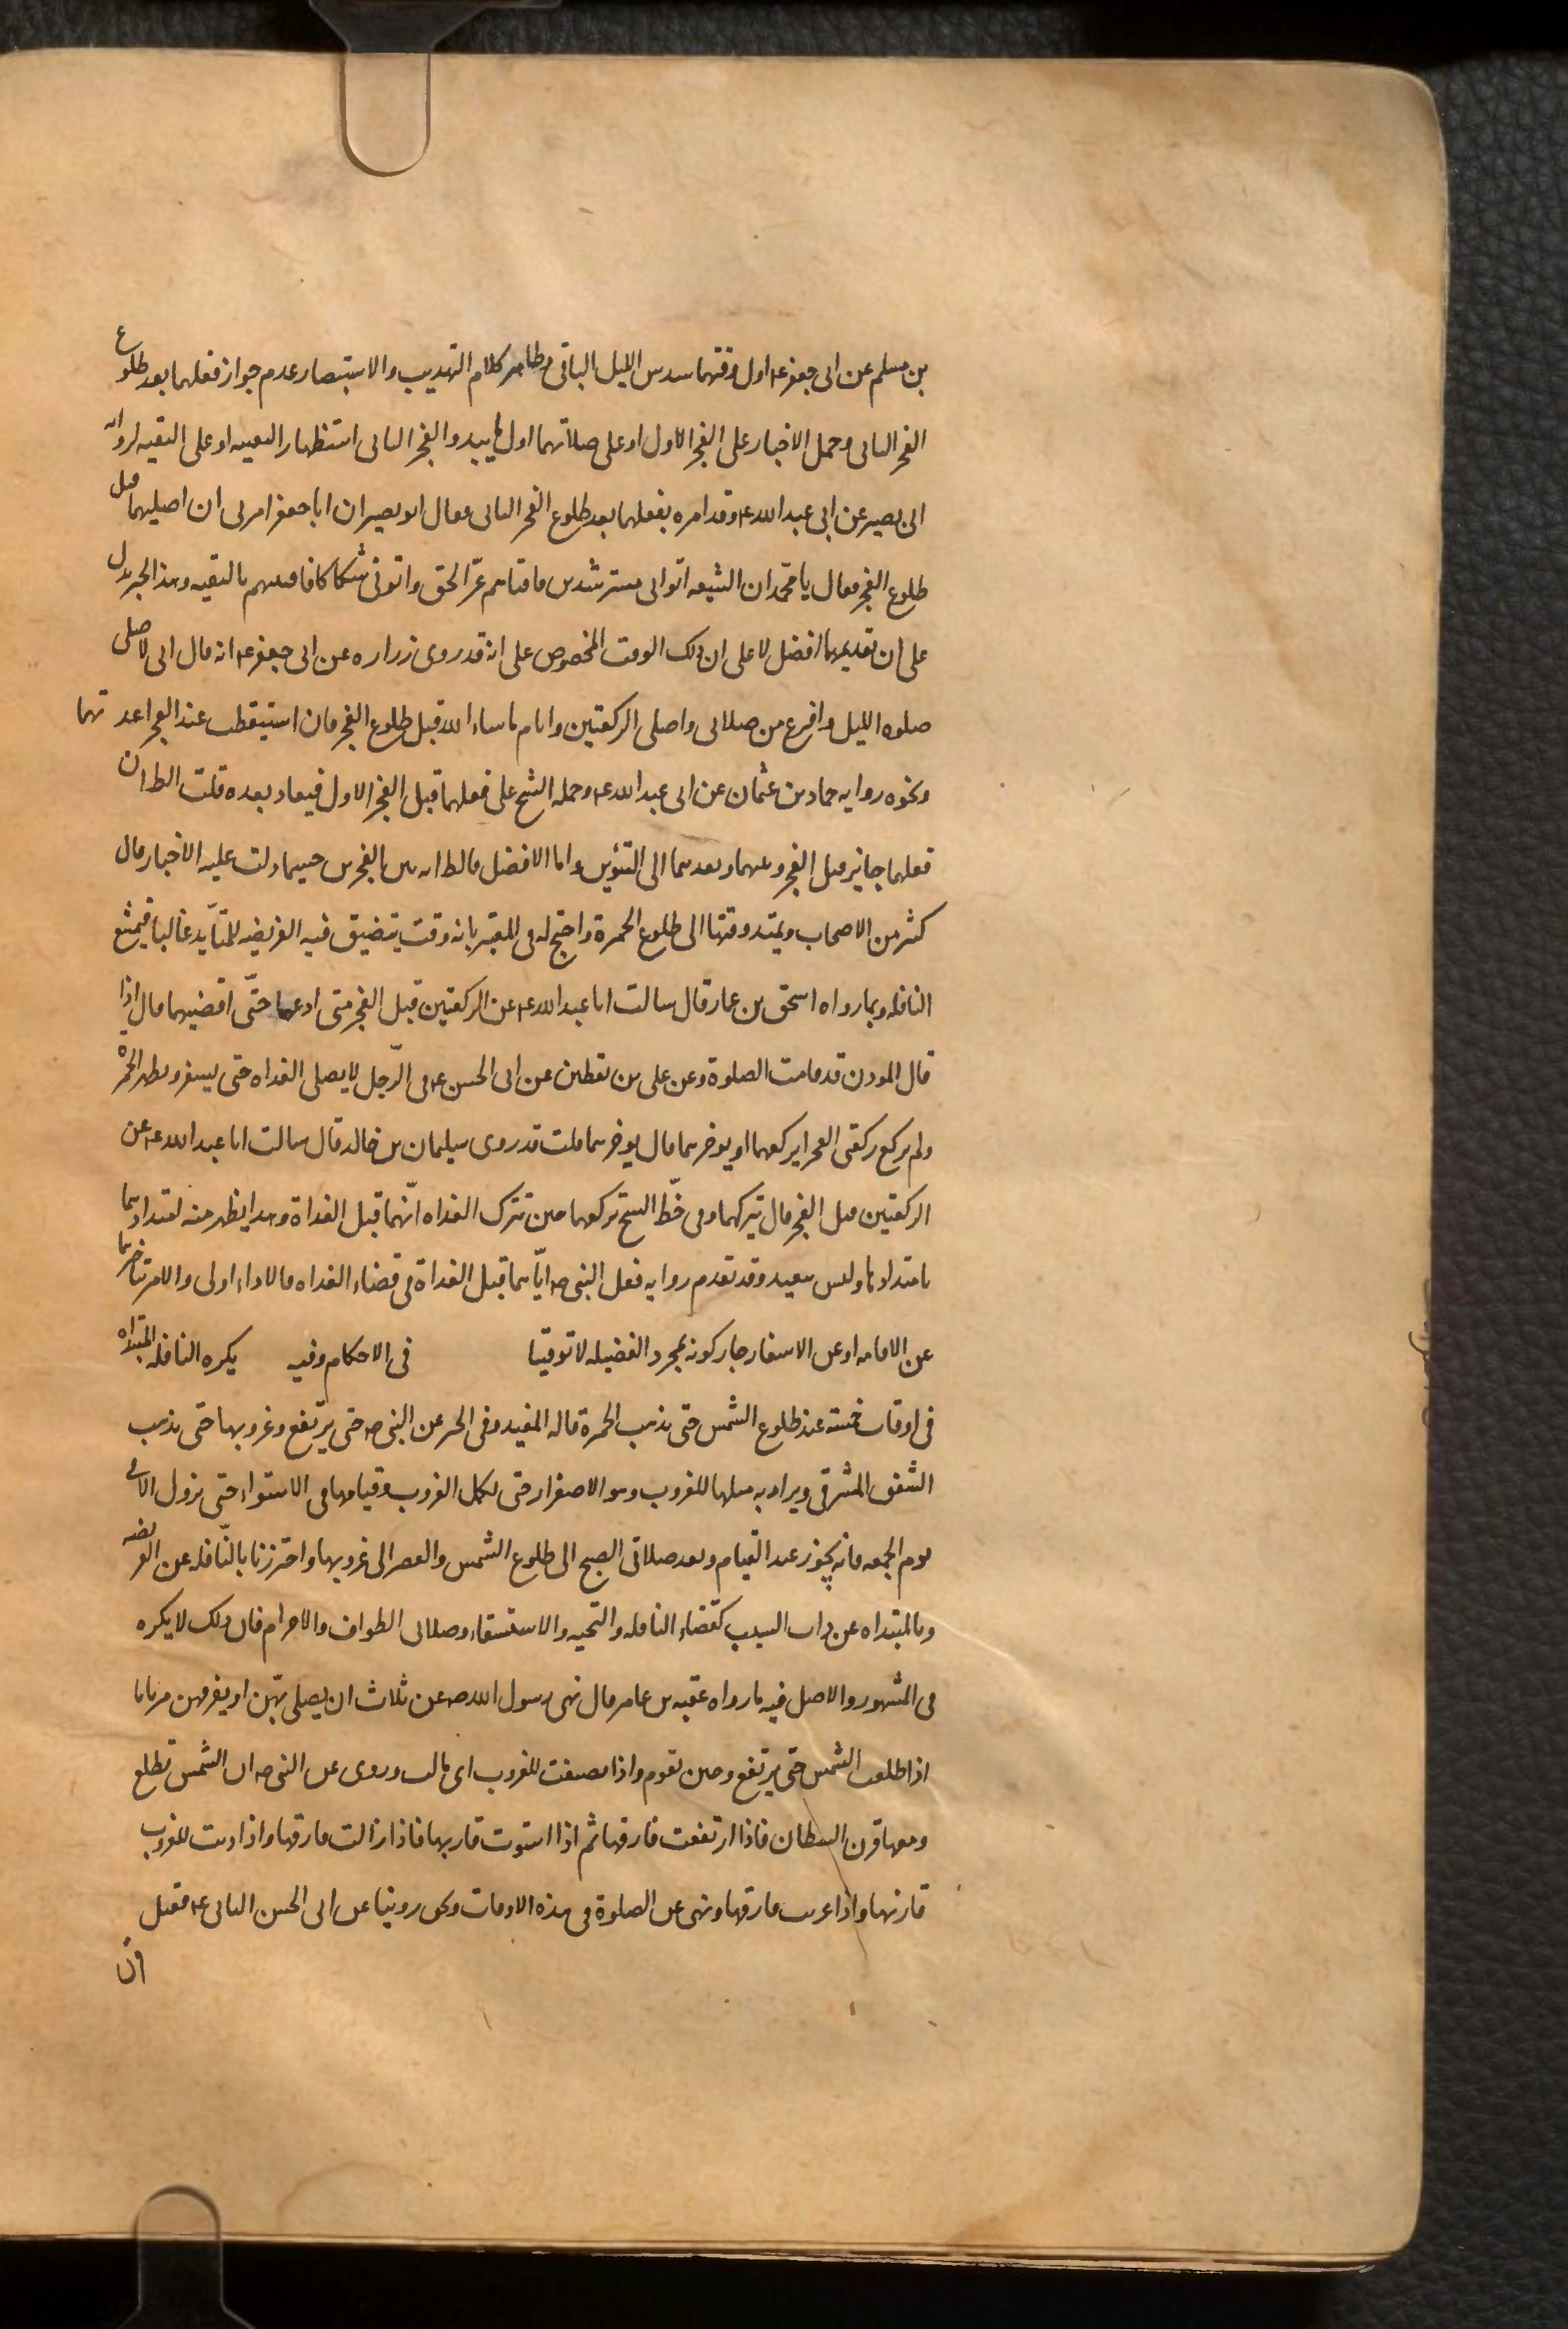 بن مسلم عن ابى جعفر ع اول وقتهما سدس الليل الباقى وظاهر كلام التهذيب والاستبصار عدم جواز فعلهما بعد طلوع
الفجر الثانى وحمل الاخبار على الفجر الاول او على صلاتهما اول ما يبدو الفجر الثانى استظهارا لتعيينه او على التقيه لروايه
ابى بصير عن ابى عبد الله ع وقد امره بفعلهما بعد طلوع الفجر الثانى فقال ابو بصير ان ابا جعفر امرنى ان اصليهما قبل
طلوع الفجر فقال يا با محمد ان الشيعه اتوا ابى مسترشدين فافتاهم بمرّ الحق واتونى شكاكا فافتيتهم بالتقيه وهذا الخبر يدل
على ان تقديمهما افضل لا على ان ذلك الوقت المخصوص على انه قد روى زراره عن ابى جعفر ع انه قال انى لاصلى
صلوه الليل وافرغ من صلاتى واصلى الركعتين وانام ما شاء الله قبل طلوع الفجر فان استيقظت عند الفجر اعدتهما
ونحوه روايه حماد بن عثمان عن ابى عبد الله ع وحمله الشيخ على فعلهما قبل الفجر الاول فيعاد بعده قلت الظ ان
فعلهما جايز قبل الفجر وعنهما وبعدهما الى التنوير واما الافضل فالظ انه بين الفجرين حسبما دلت عليه الاخبار قال
كثير من الاصحاب ويمتد وقتها الى طلوع الحمرة واحتج له فى المعتبر بانه وقت يتضيق فيه الفريضه للمتأيد غالبا فيمنع
النافله وبما رواه اسحق بن عمار قال سالت ابا عبد الله ع عن الركعتين قبل الفجر متى ادعهما حتّى اقضيهما قال اذا
قال الموذن قد قامت الصلوة وعن على بن يقطين عن ابى الحسن ع فى الرّجل لا يصلى الغداه حتى يسفر وتظهر الحمرة
ولم يركع ركعتى الفجر ايركعهما او يوخرهما قال يوخرهما قلت قد روى سليمان بن خالد قال سالت ابا عبد الله ع عن
الركعتين قبل الفجر قال تركعهما وفى خطّ الشيخ تركعهما حين تترك الغداه انّهما قبل الغداة وهذا يظهر منه امتدادهما
بامتدادها وليس ببعيد وقد تقدم روايه فعل النبى ص ايّاهما قبل الغداة فى قضاء الغداه فالاداء اولى والامر بتاخيرهما
عن الاقامه او عن الاسفار جاز كونه لمجرد الفضيله لا توقيتا فى الاحكام وفيه يكره النافله المبتداه
فى اوقات خمسه عند طلوع الشمس حتى يذهب الحمرة قاله المفيد وفى الخبر عن النبى ص حتى يرتفع وغروبها حتى يذهب
الشفق المشرقى ويراد به ميلها للغروب وهو الاصفرار حتى يكمل الغروب وقيامها فى الاستواء حتى يزول الا فى
يوم الجمعه فانه يجوز عند القيام وبعد صلاتى الصبح الى طلوع الشمس والعصر الى غروبها واحترزنا بالنّافله عن الفريضه
وبالمبتداه عن ذات السبب كقضاء النافله والتحيه والاستسقاء وصلاتى الطواف والاحرام فان ذلك لا يكره
فى المشهور والاصل فيه ما رواه عقبه بن عامر قال نهى رسول الله ص عن ثلاث ان يصلى بهنّ او يقرفهن موتانا
اذا طلعت الشمس حتى يرتفع وحين تقوم واذا تصيفت للغروب اى مالت وروى عن النبى ص ان الشمس تطلع
ومعها قرن الشيطان فاذا ارتفعت فارقها ثم اذا استوت قارنها فاذا زالت فارقها واذا دنت للغروب
قارنها واذا غربت فارقها ونهى عن الصلوة فى هذه الاوقات ونحن روينا عن ابى الحسن الثانى ع فقيل
ان